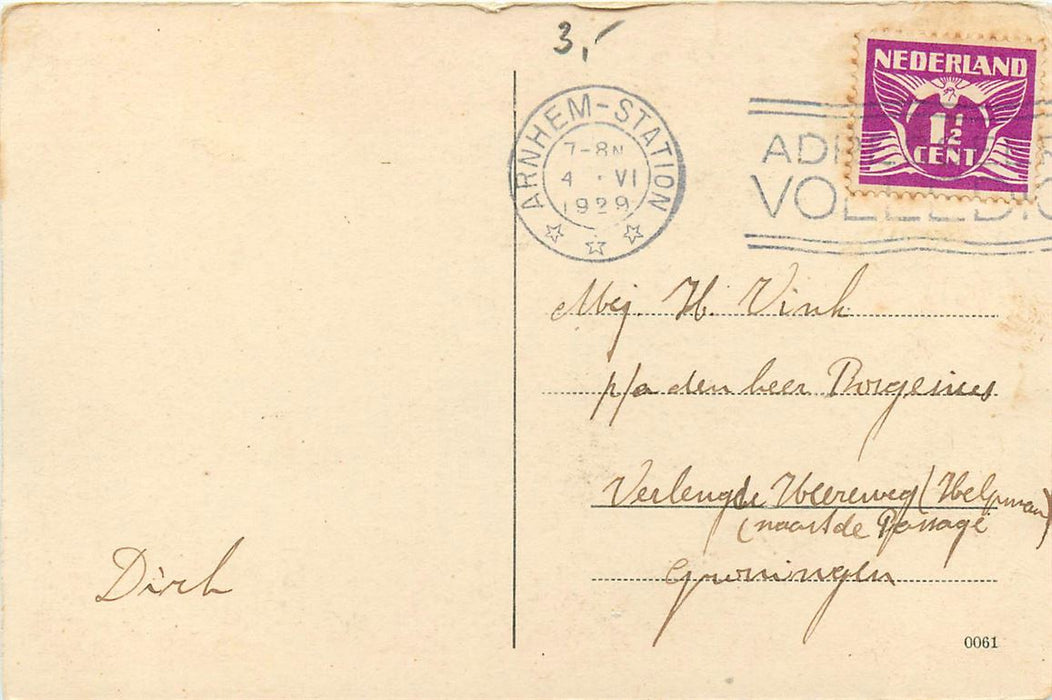 3,-
NEDERLAND
1½
CENT
ARNHEM-STATION
7-8N
4 · VI
1929
VOLLEDIG
Mej. H. Vink
p/a den heer Borgesius
Verlengde Heereweg (Helpman)
(naast de Passage
Groningen
Dirk
0061